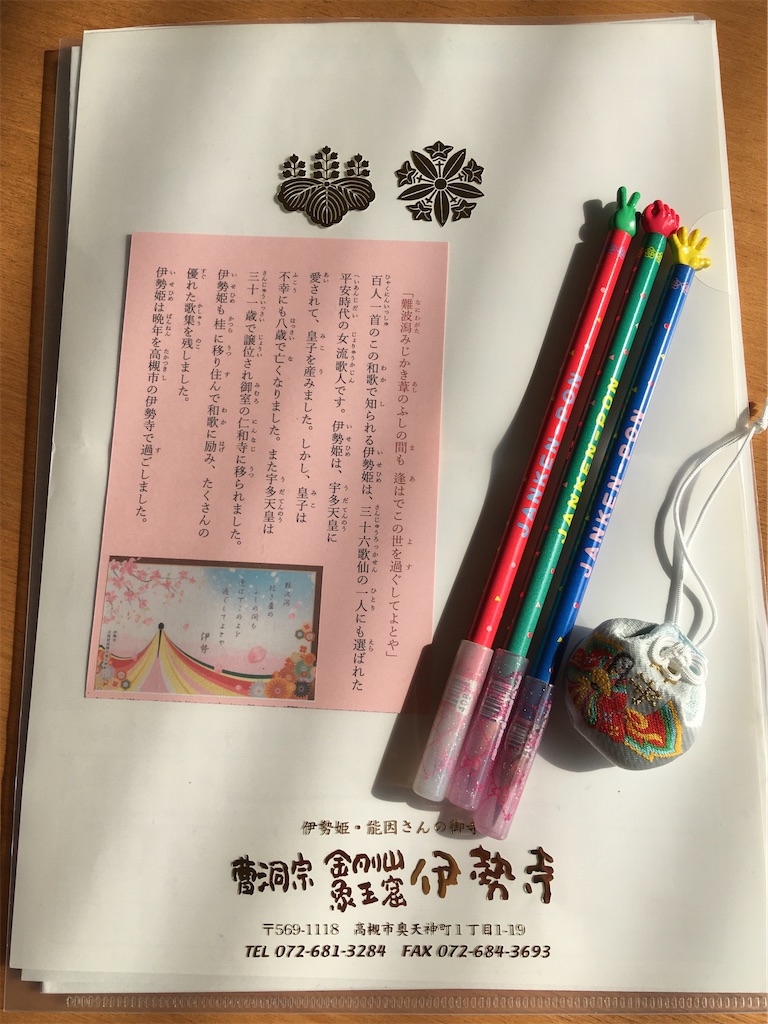 「難波潟みじかき葦のふしの間も 逢はでこの世を過ぐしてよとや」
百人一首のこの和歌で知られる伊勢姫は、三十六歌仙の一人にも選ばれた
平安時代の女流歌人です。伊勢姫は、宇多天皇に
愛されて、皇子を産みました。しかし、皇子は
不幸にも八歳で亡くなりました。また宇多天皇は
三十一歳で譲位され御室の仁和寺に移られました。
伊勢姫も桂に移り住んで和歌に励み、たくさんの
優れた歌集を残しました。
伊勢姫は晩年を高槻市の伊勢寺で過ごしました。
難波潟
短き葦の
ふしの間も
逢はでこの世を
過ぐしてよとや
伊勢
JANKEN-PON
JANKEN-PON
JANKEN-PON
伊勢姫・能因さんの御寺
曹洞宗 金剛山 象王窟 伊勢寺
〒569-1118 高槻市奥天神町1丁目1-19
TEL 072-681-3284 FAX 072-684-3693